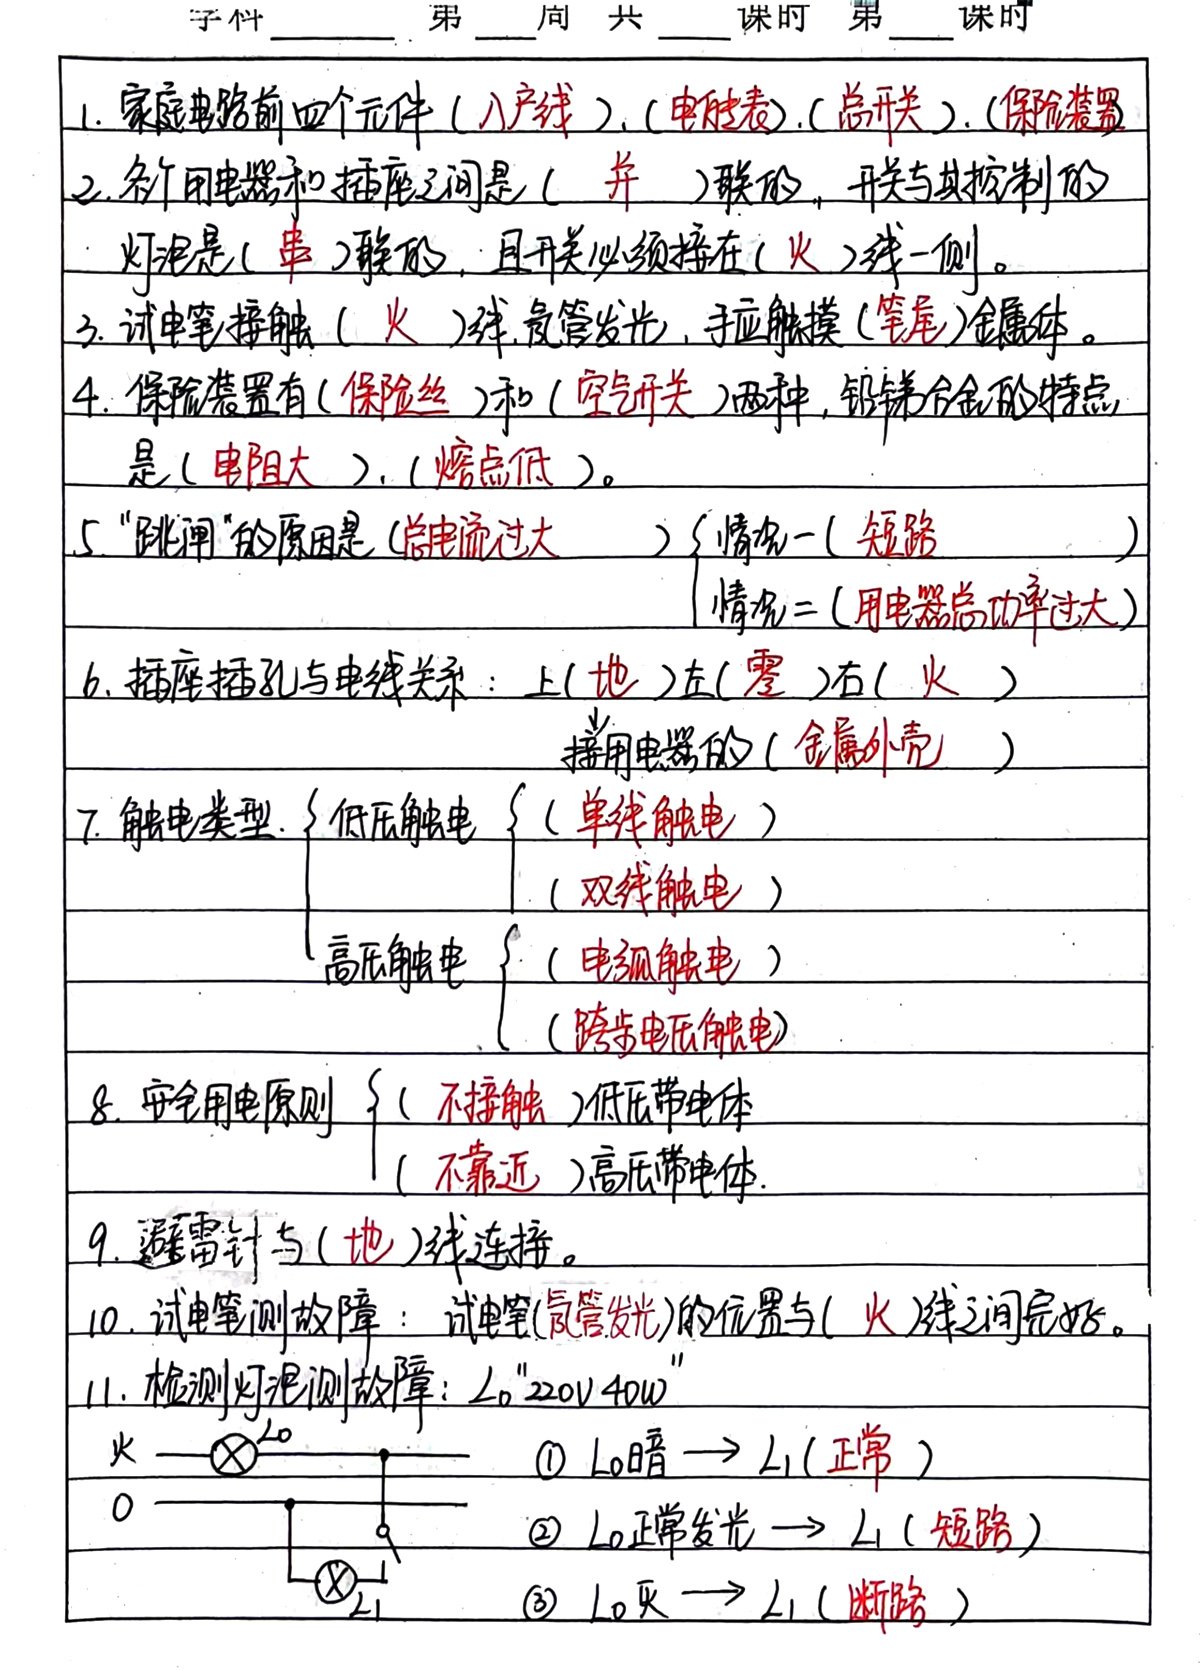 学科______ 第___周 共___课时 第___课时
1. 家庭电路前四个元件(入户线)、(电能表)、(总开关)、(保险装置)
2. 各个用电器和插座之间是(并)联的,开关与其控制的
灯泡是(串)联的,且开关必须接在(火)线一侧。
3. 试电笔接触(火)线,氖管发光,手应触摸(笔尾)金属体。
4. 保险装置有(保险丝)和(空气开关)两种,铅锑合金的特点
是(电阻大)、(熔点低)。
5 "跳闸"的原因是(总电流过大) 情况一(短路)
情况二(用电器总功率过大)
6. 插座插孔与电线关系:上(地)左(零)右(火)
接用电器的(金属外壳)
7. 触电类型. 低压触电 (单线触电)
(双线触电)
高压触电 (电弧触电)
(跨步电压触电)
8. 安全用电原则 (不接触)低压带电体
(不靠近)高压带电体.
9. 避雷针与(地)线连接。
10. 试电笔测故障:试电笔(氖管发光)的位置与(火)线之间完好。
11. 检测灯泡测故障:L₀"220V 40W"
火 L₀ ① L₀暗 → L₁(正常)
0 ② L₀正常发光 → L₁(短路)
L₁ ③ L₀灭 → L₁(断路)